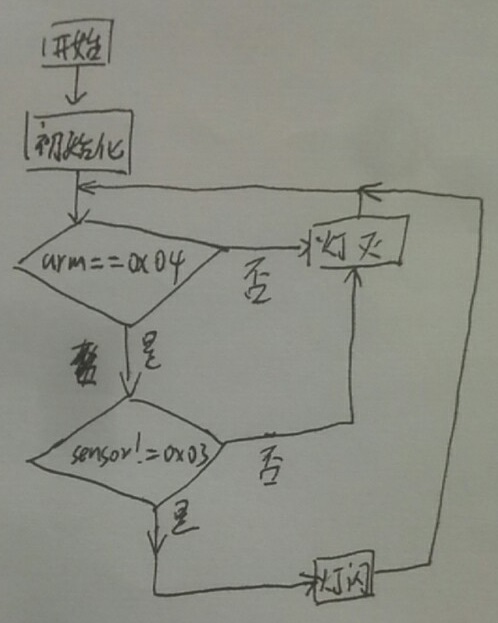 开始
初始化
arm==0x04
否
灯灭
是
sensor!=0x03
否
是
灯闪